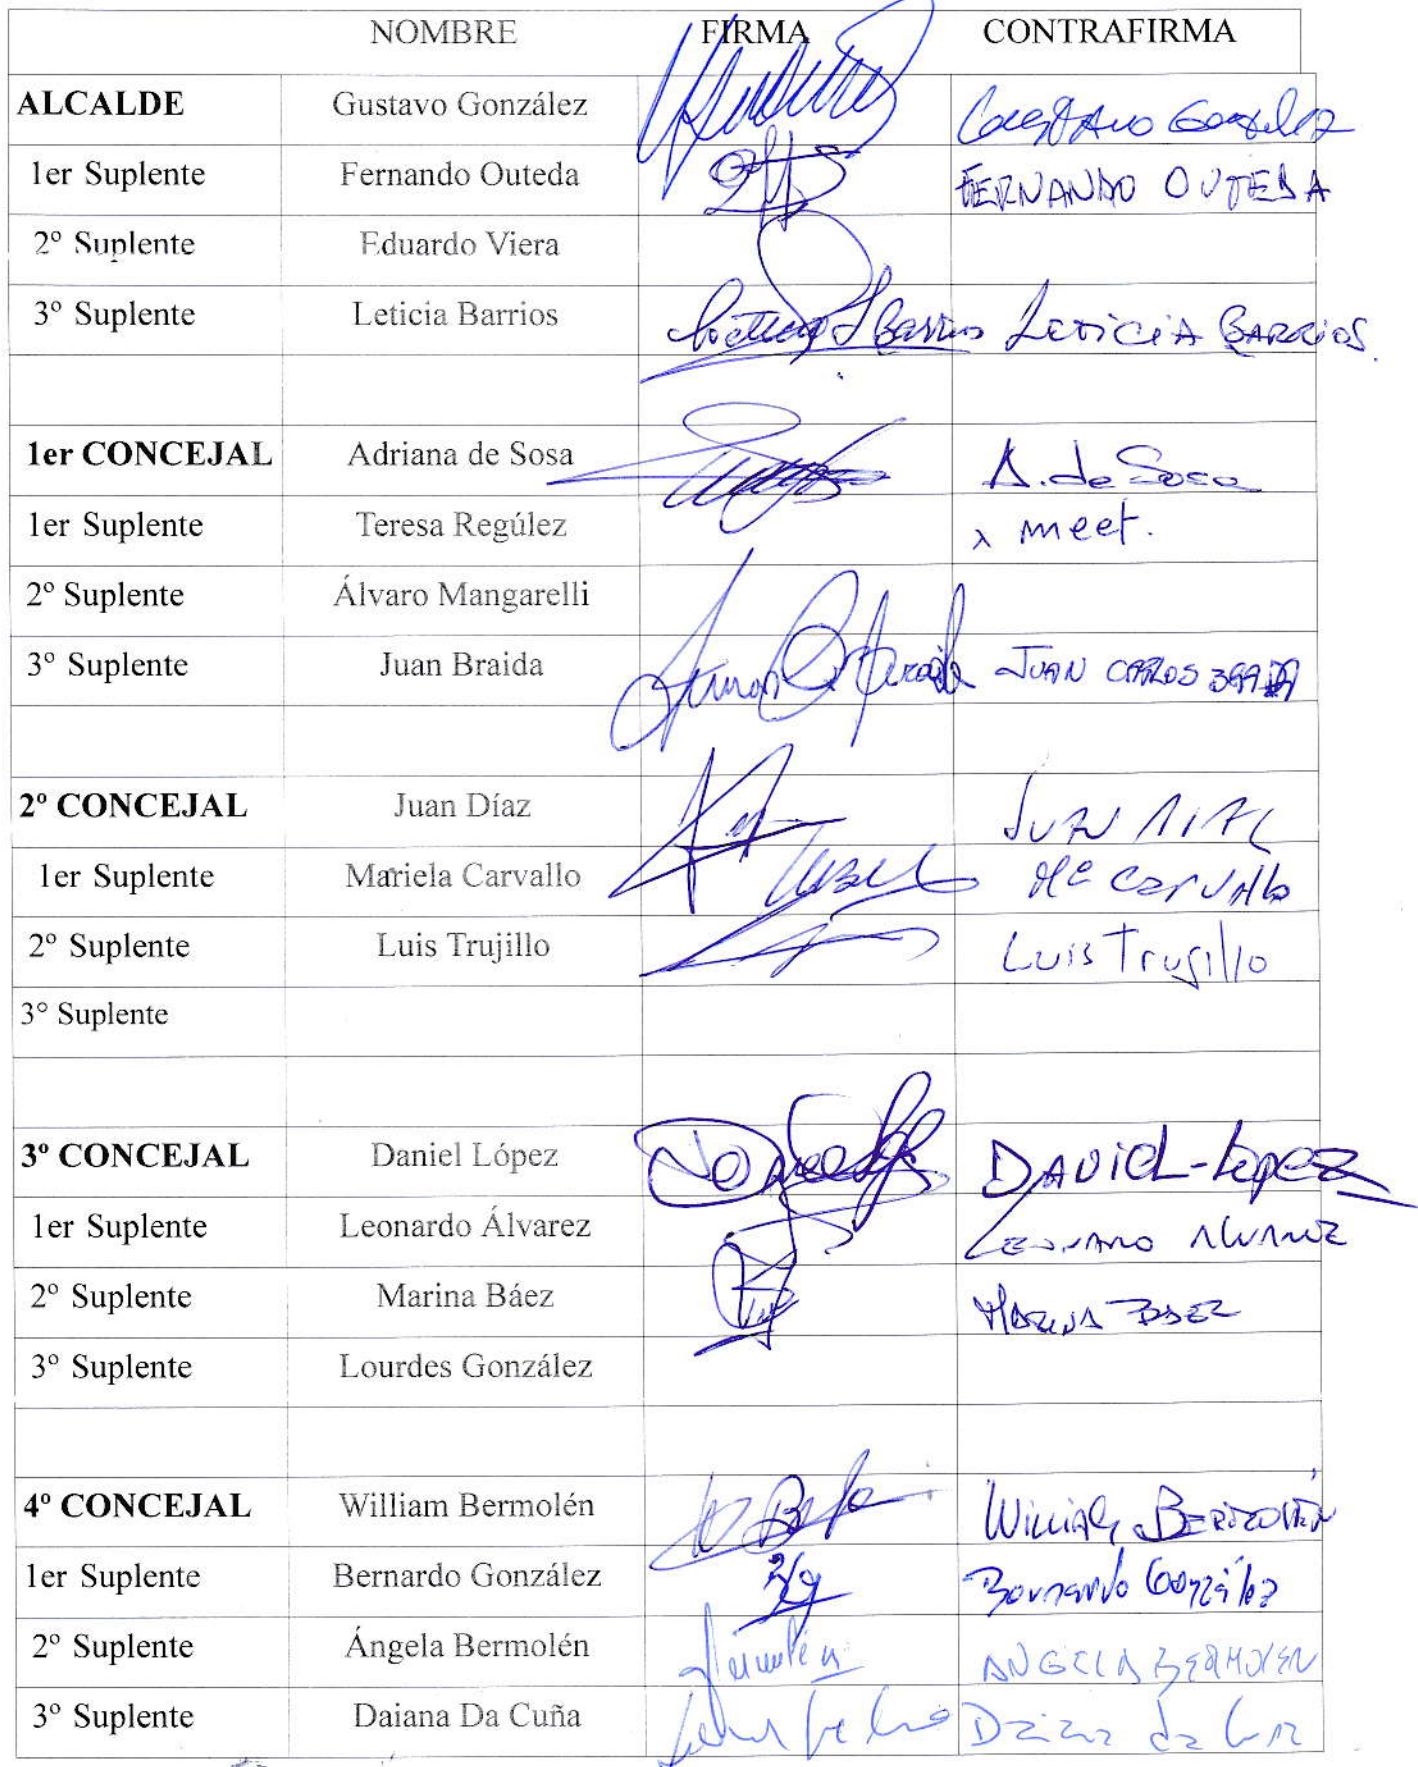 NOMBRE FIRMA CONTRAFIRMA
ALCALDE Gustavo González Gustavo González
1er Suplente Fernando Outeda FERNANDO OUTEDA
2º Suplente Eduardo Viera
3º Suplente Leticia Barrios LETICIA BARRIOS.
1er CONCEJAL Adriana de Sosa A. de Sosa
1er Suplente Teresa Regúlez x meet.
2º Suplente Álvaro Mangarelli
3º Suplente Juan Braida JUAN CARLOS
2º CONCEJAL Juan Díaz JUAN DIAZ
1er Suplente Mariela Carvallo Mª Carvallo
2º Suplente Luis Trujillo Luis Trujillo
3° Suplente
3º CONCEJAL Daniel López DANIEL-López
1er Suplente Leonardo Álvarez LEONARDO ALVAREZ
2º Suplente Marina Báez MARINA BAEZ
3º Suplente Lourdes González
4º CONCEJAL William Bermolén WILLIAM BERMOLÉN
1er Suplente Bernardo González Bernardo González
2º Suplente Ángela Bermolén ANGELA BERMOLEN
3º Suplente Daiana Da Cuña Daiana da